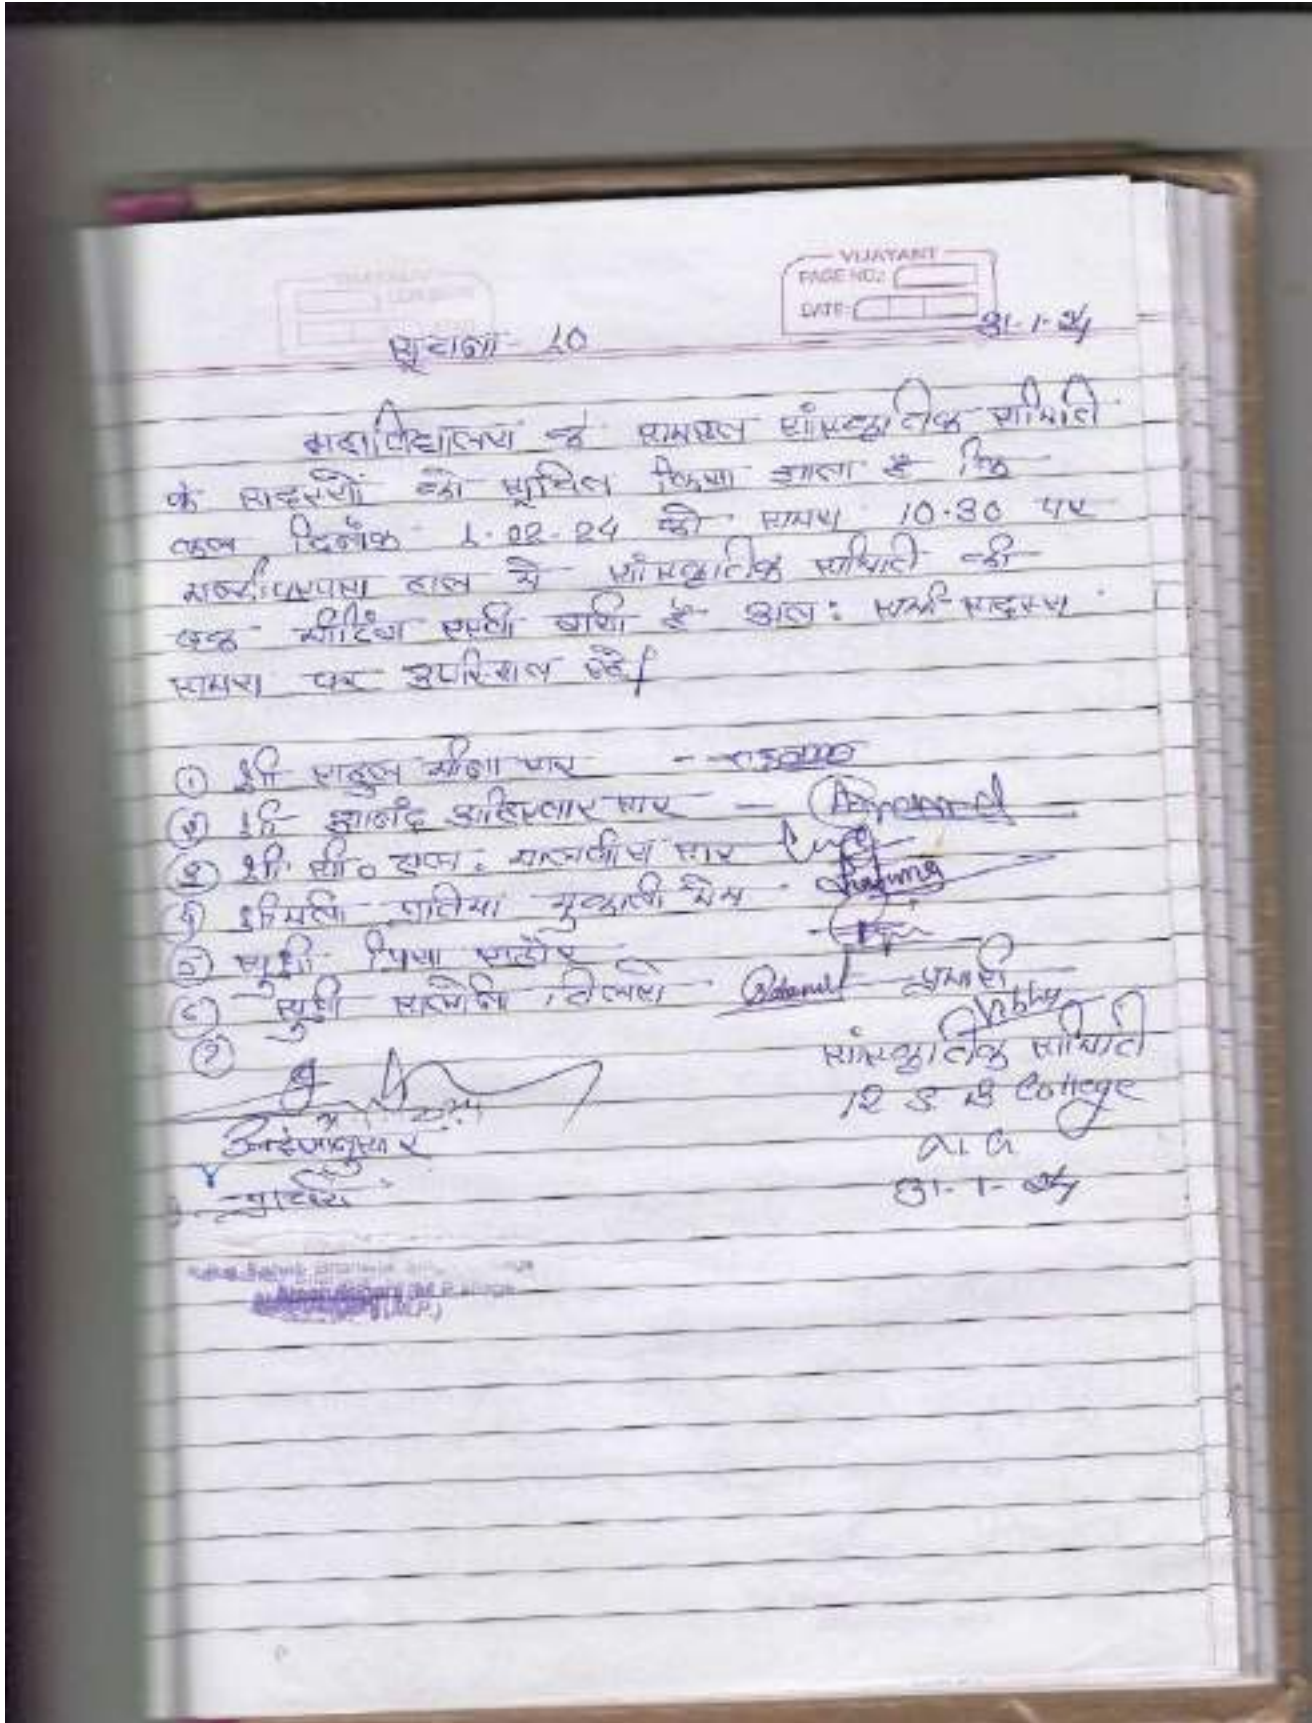 VIJAYANT
PAGE NO.:
DATE:
31-1-24
सूचना - 10
महाविद्यालय के समस्त सांस्कृतिक समिति
के सदस्यों को सूचित किया जाता है कि
कल दिनाँक 1.02.24 को समय 10.30 पर
हाल मे सांस्कृतिक समिति की
एक मीटिंग रखी गयी है अतः सभी सदस्य
समय पर उपस्थित रहे।
① श्री राहुल मीना सर
श्री आनंद अहिरवार सर
श्री सी० एल. मालवीय सर
④ श्रीमती प्रतिभा मुकाती मेम
⑤ सुश्री प्रिया राठौर
सुश्री सलोनी
प्रभारी
⑦
सांस्कृतिक समिति
S B College
आदेशानुसार
प्राचार्य
31-1-24
(M.P.)